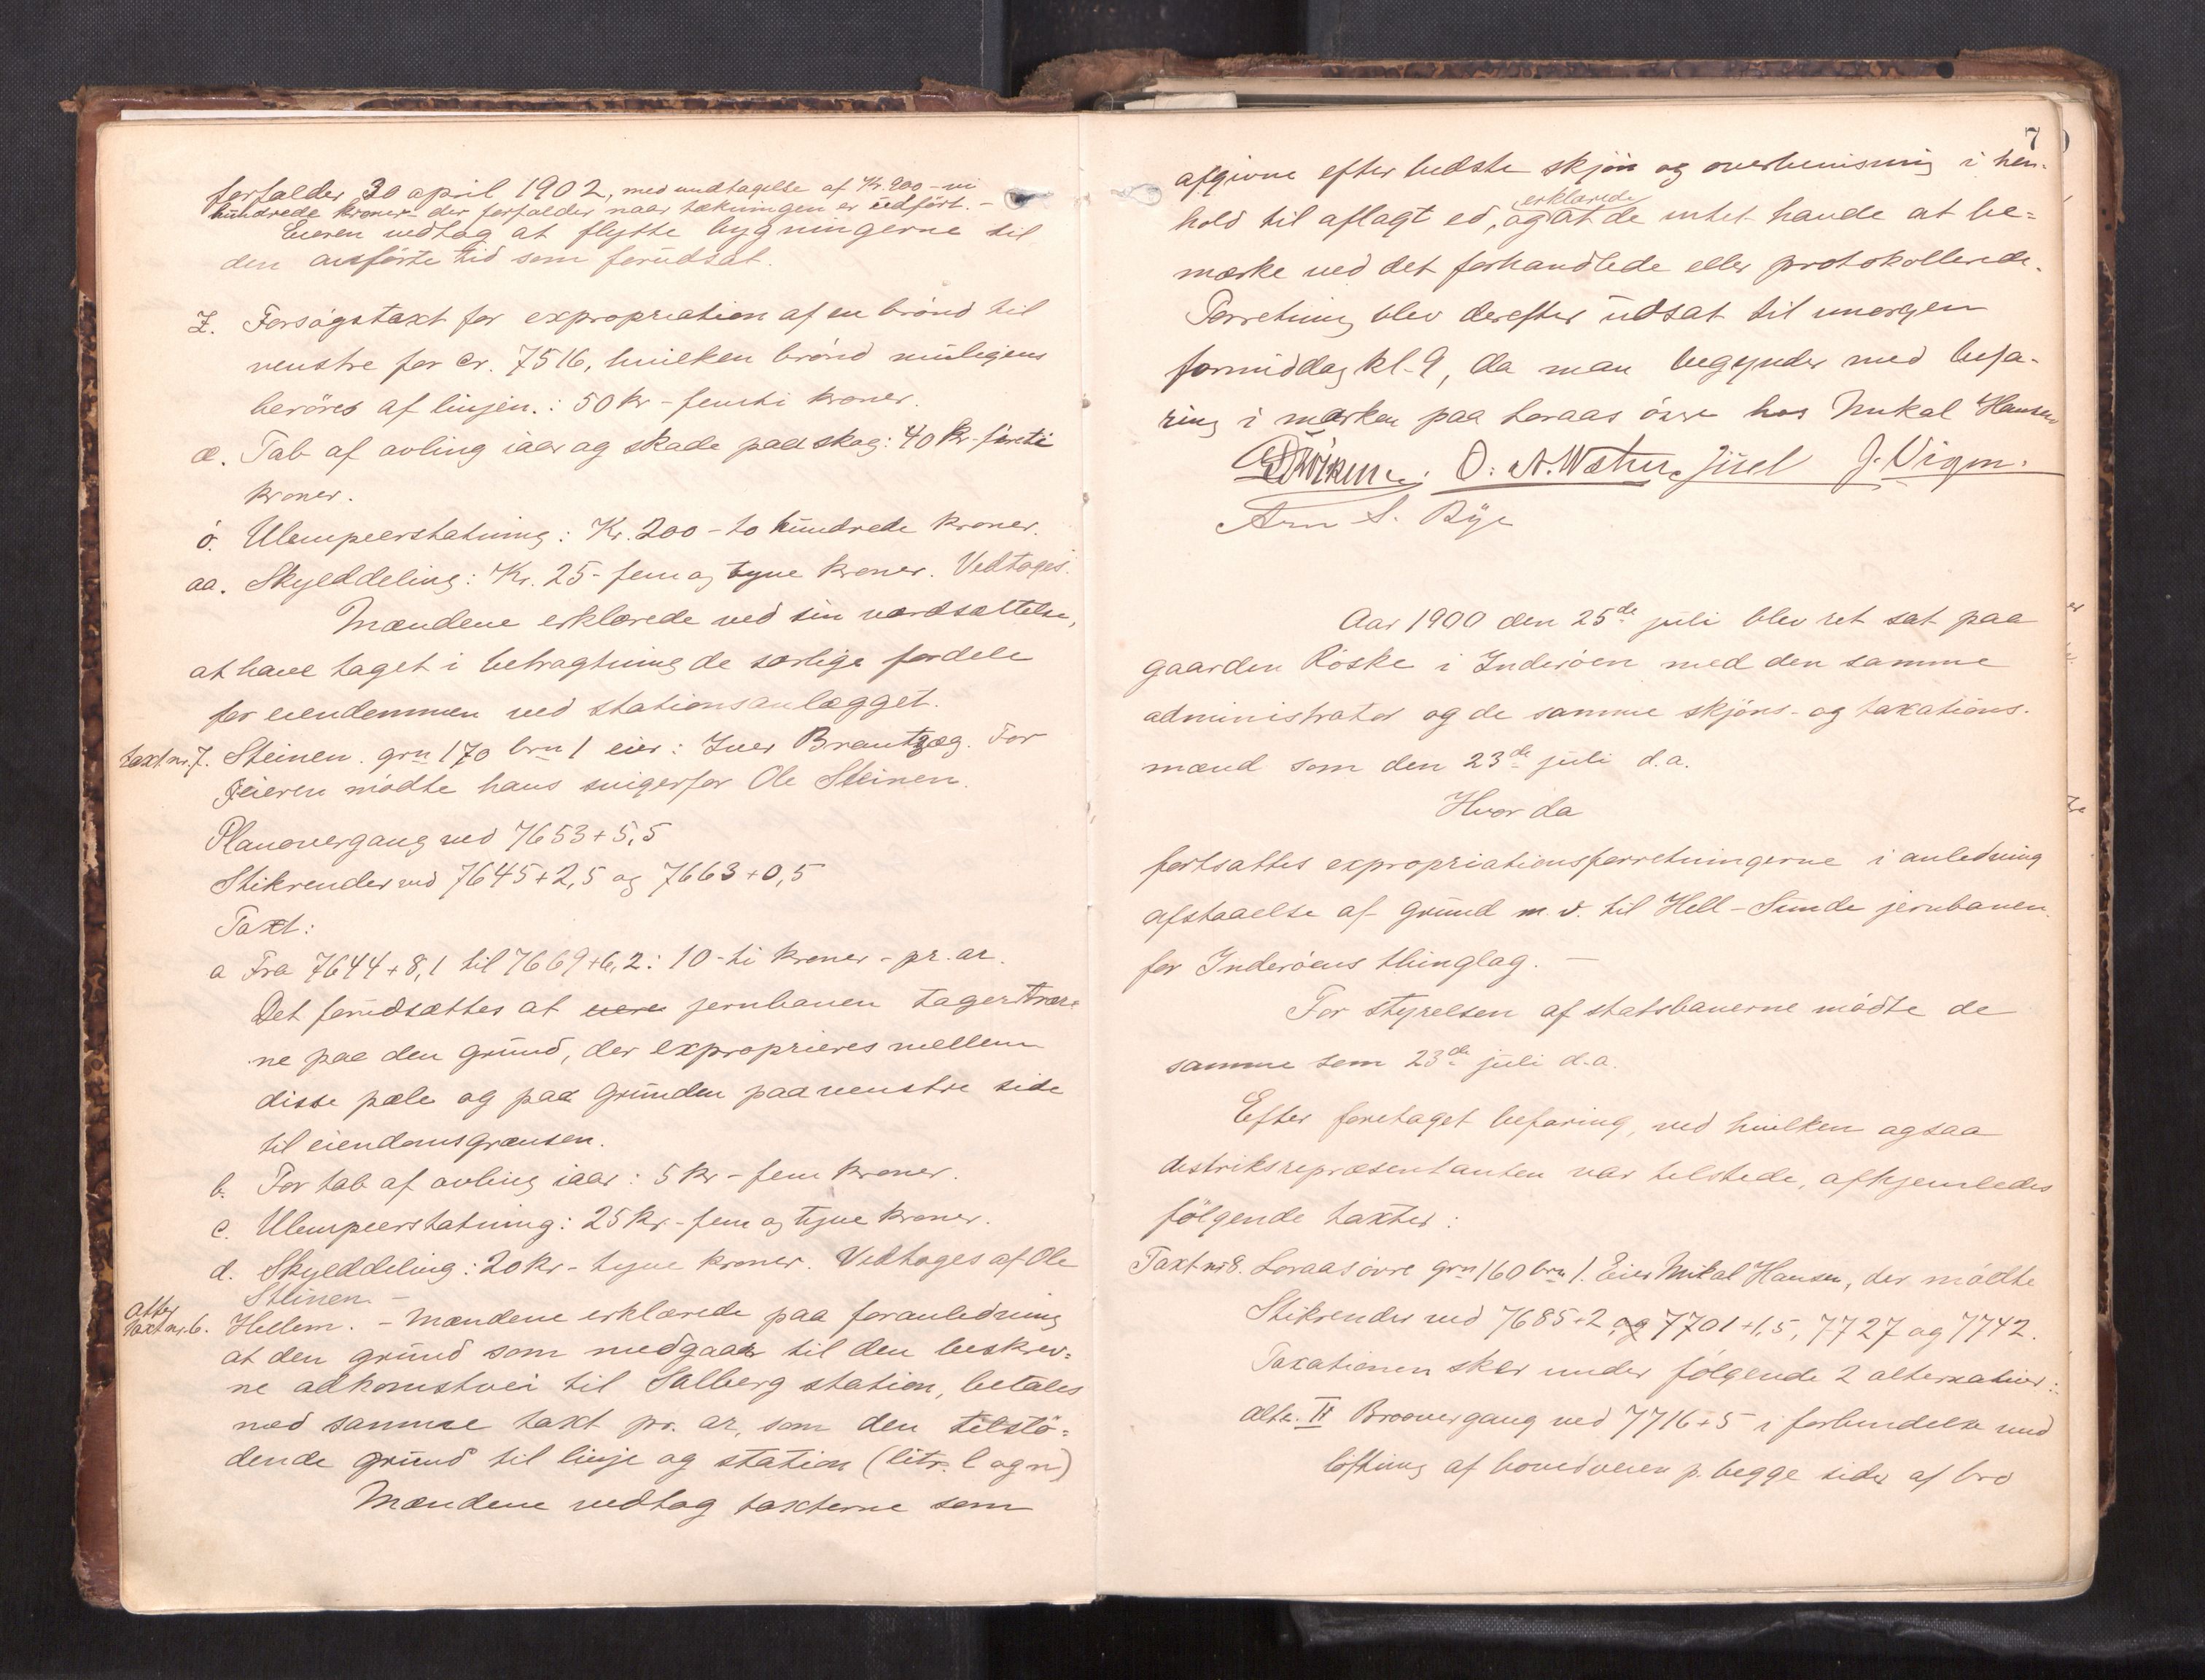 forfalder 30 april 1902, med undtagelse af Kr. 900 - ni
hundrede kroner - der forfalder naar tækningen er udført. -
Eieren vedtog at flytte bygningerne til
den anførte tid som forudsat.
Z. Forsøgstaxt for expropriation af en brønd til
venstre for cr. 7516, hvilken brønd muligens
berøres af linjen.: 50 kr - femti kroner.
æ. Tab af avling iaar og skade paa skog: 40 kr - firti
kroner.
ø. Ulempeerstatning: Kr. 200 - to hundrede kroner.
aa. Skylddeling: Kr. 25 - fem og tyve kroner. Vedtoges.
Mændene erklærede ved sin værdsættelse,
at have taget i betragtning de særlige fordele
for eiendommen ved stationsanlægget.
taxt nr. 7. Steinen. grn 170 brn 1 eier: Iver Brantzæg. For
eieren mødte hans svigerfar Ole Steinen.
Planovergang ved 7653+5,5
Stikrender ved 7645+2,5 og 7663+0,5
Taxt:
a Fra 7644+8,1 til 7669+6,2: 10 - ti kroner - pr. ar.
Det forudsættes at jernbanen tager trær-
ne paa den grund, der exproprieres mellem
disse pæle og paa grunden paa venstre side
til eiendomsgrænsen.
b. For tab af avling iaar: 5 kr - fem kroner.
c. Ulempeerstatning: 25 kr - fem og tyve kroner.
d. Skylddeling: 20 kr - tyve kroner. Vedtoges af Ole
Steinen. -
atter
taxt nr. 6. Hellem. - Mændene erklærede paa foranledning
at den grund som medgaar til den beskrev=
ne adkomstvei til Salberg station, betales
med samme taxt pr. ar, som den tilstø=
dende grund til linje og station (litr. l og n)
Mændene vedtog taxterne som
7
afgivne efter bedste skjøn og overbevisning i hen-
erklærede
hold til aflagt ed, og at de intet havde at be=
mærke ved det forhandlede eller protokollerede.
Forretning blev derefter udsat til imorgen
formiddag kl. 9, da man begynder med befa-
ring i marken paa Loraas øvre hos Mikal Hansen
J. Vigen.
Arn S. Bye
Aar 1900 den 25de juli blev ret sat paa
gaarden Røske i Inderøen med den samme
administrator og de samme skjøns- og taxations-
mænd som den 23de juli d.a.
Hvor da
fortsattes expropriationsforretningerne i anledning
afstaaelse af grund m.v. til Hell - Sunde jernbanen
for Inderøens thinglag. -
For styrelsen af statsbanerne mødte de
samme som 23de juli d.a.
Efter foretaget befaring, ved hvilken ogsaa
distriksrepræsentanten var tilstede, afhjemledes
følgende taxter:
Taxt nr 8. Loraas øvre grn 160 brn 1. Eier Mikal Hansen, der mødte
Stikrender ved 7685+2 og 7701+1,5, 7727 og 7742.
Taxationen sker under følgende 2 alternativer:
Alte. II Broovergang ved 7716+5 i forbindelse med
løftning af hovedveien p. begge sider af bro